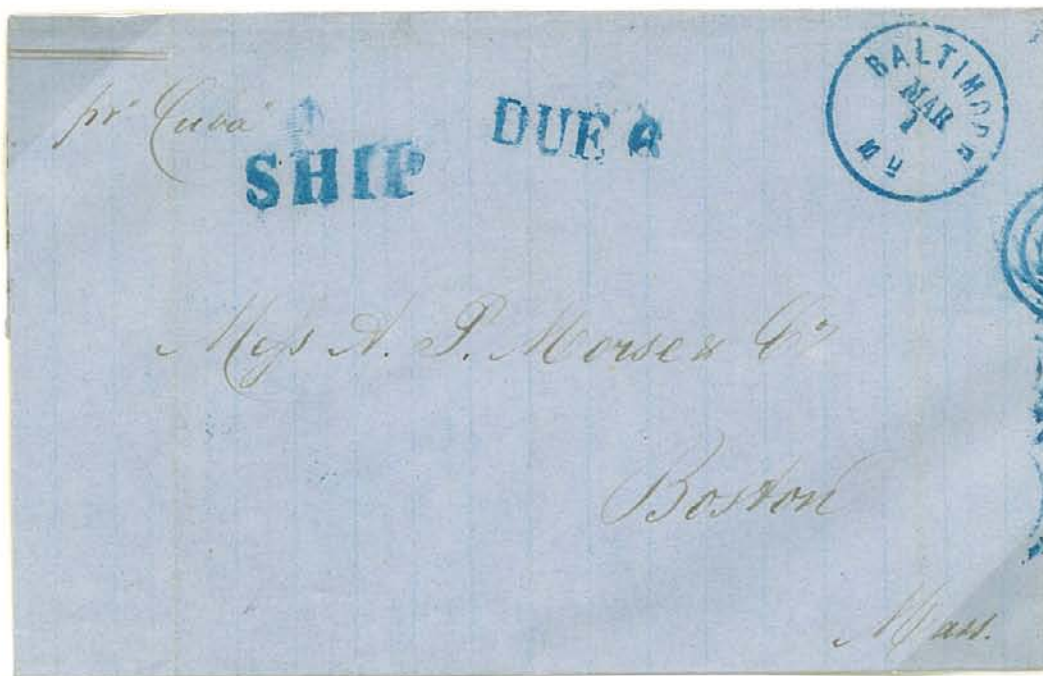 pr "Cuba"
SHIP
DUE 6
BALTIMORE
MAR
7
MD
A. P. Morse & Co
Boston
Mass.